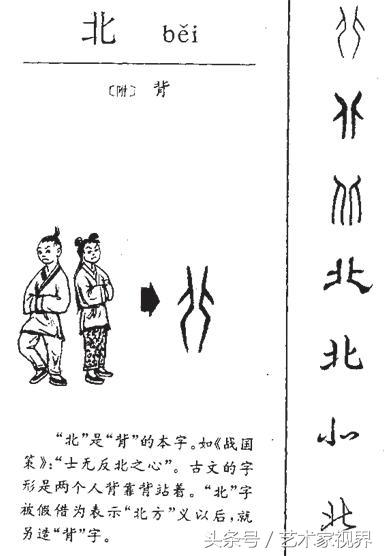 北 běi
〔附〕 背
“北”是“背”的本字。如《战国
策》：“士无反北之心”。古文的字
形是两个人背靠背站着。“北”字
被假借为表示“北方”义以后，就
另造“背”字。
北
北
北
北
头条号／艺术家视界